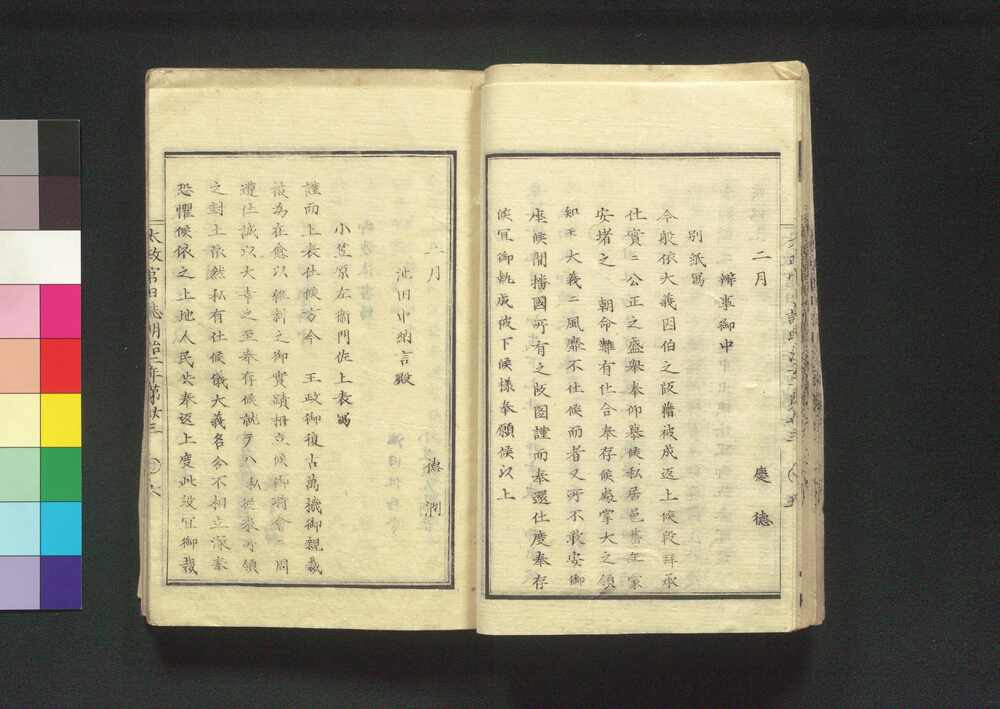 二月　慶德
辨事御中
別紙寫
今般依大義因伯之版籍被成返上候段拜承
仕實ニ公正之盛擧奉仰慕候私居邑舊在家
安堵之　朝命難有仕合奉存候處掌大之領
知モ大義ニ風靡不仕候而者又所不敢安御
座候間播國所有之版圖謹而奉還仕度奉存
候宜御執成被下候樣奉願候以上
二月　德潤
池田中納言殿
小笠原左衞門佐上表寫
謹而上表仕候方今　王政御復古萬機御親裁
被為在愈以維新之御實蹟相立候御時會ニ周
遭仕誠以大幸之至奉存候就テハ私從來所領
之封土依然私有仕候儀大義名分不相立深奉
恐懼候依之土地人民共奉返上度此段宜御裁
太政官日誌明治二年第廿三
六